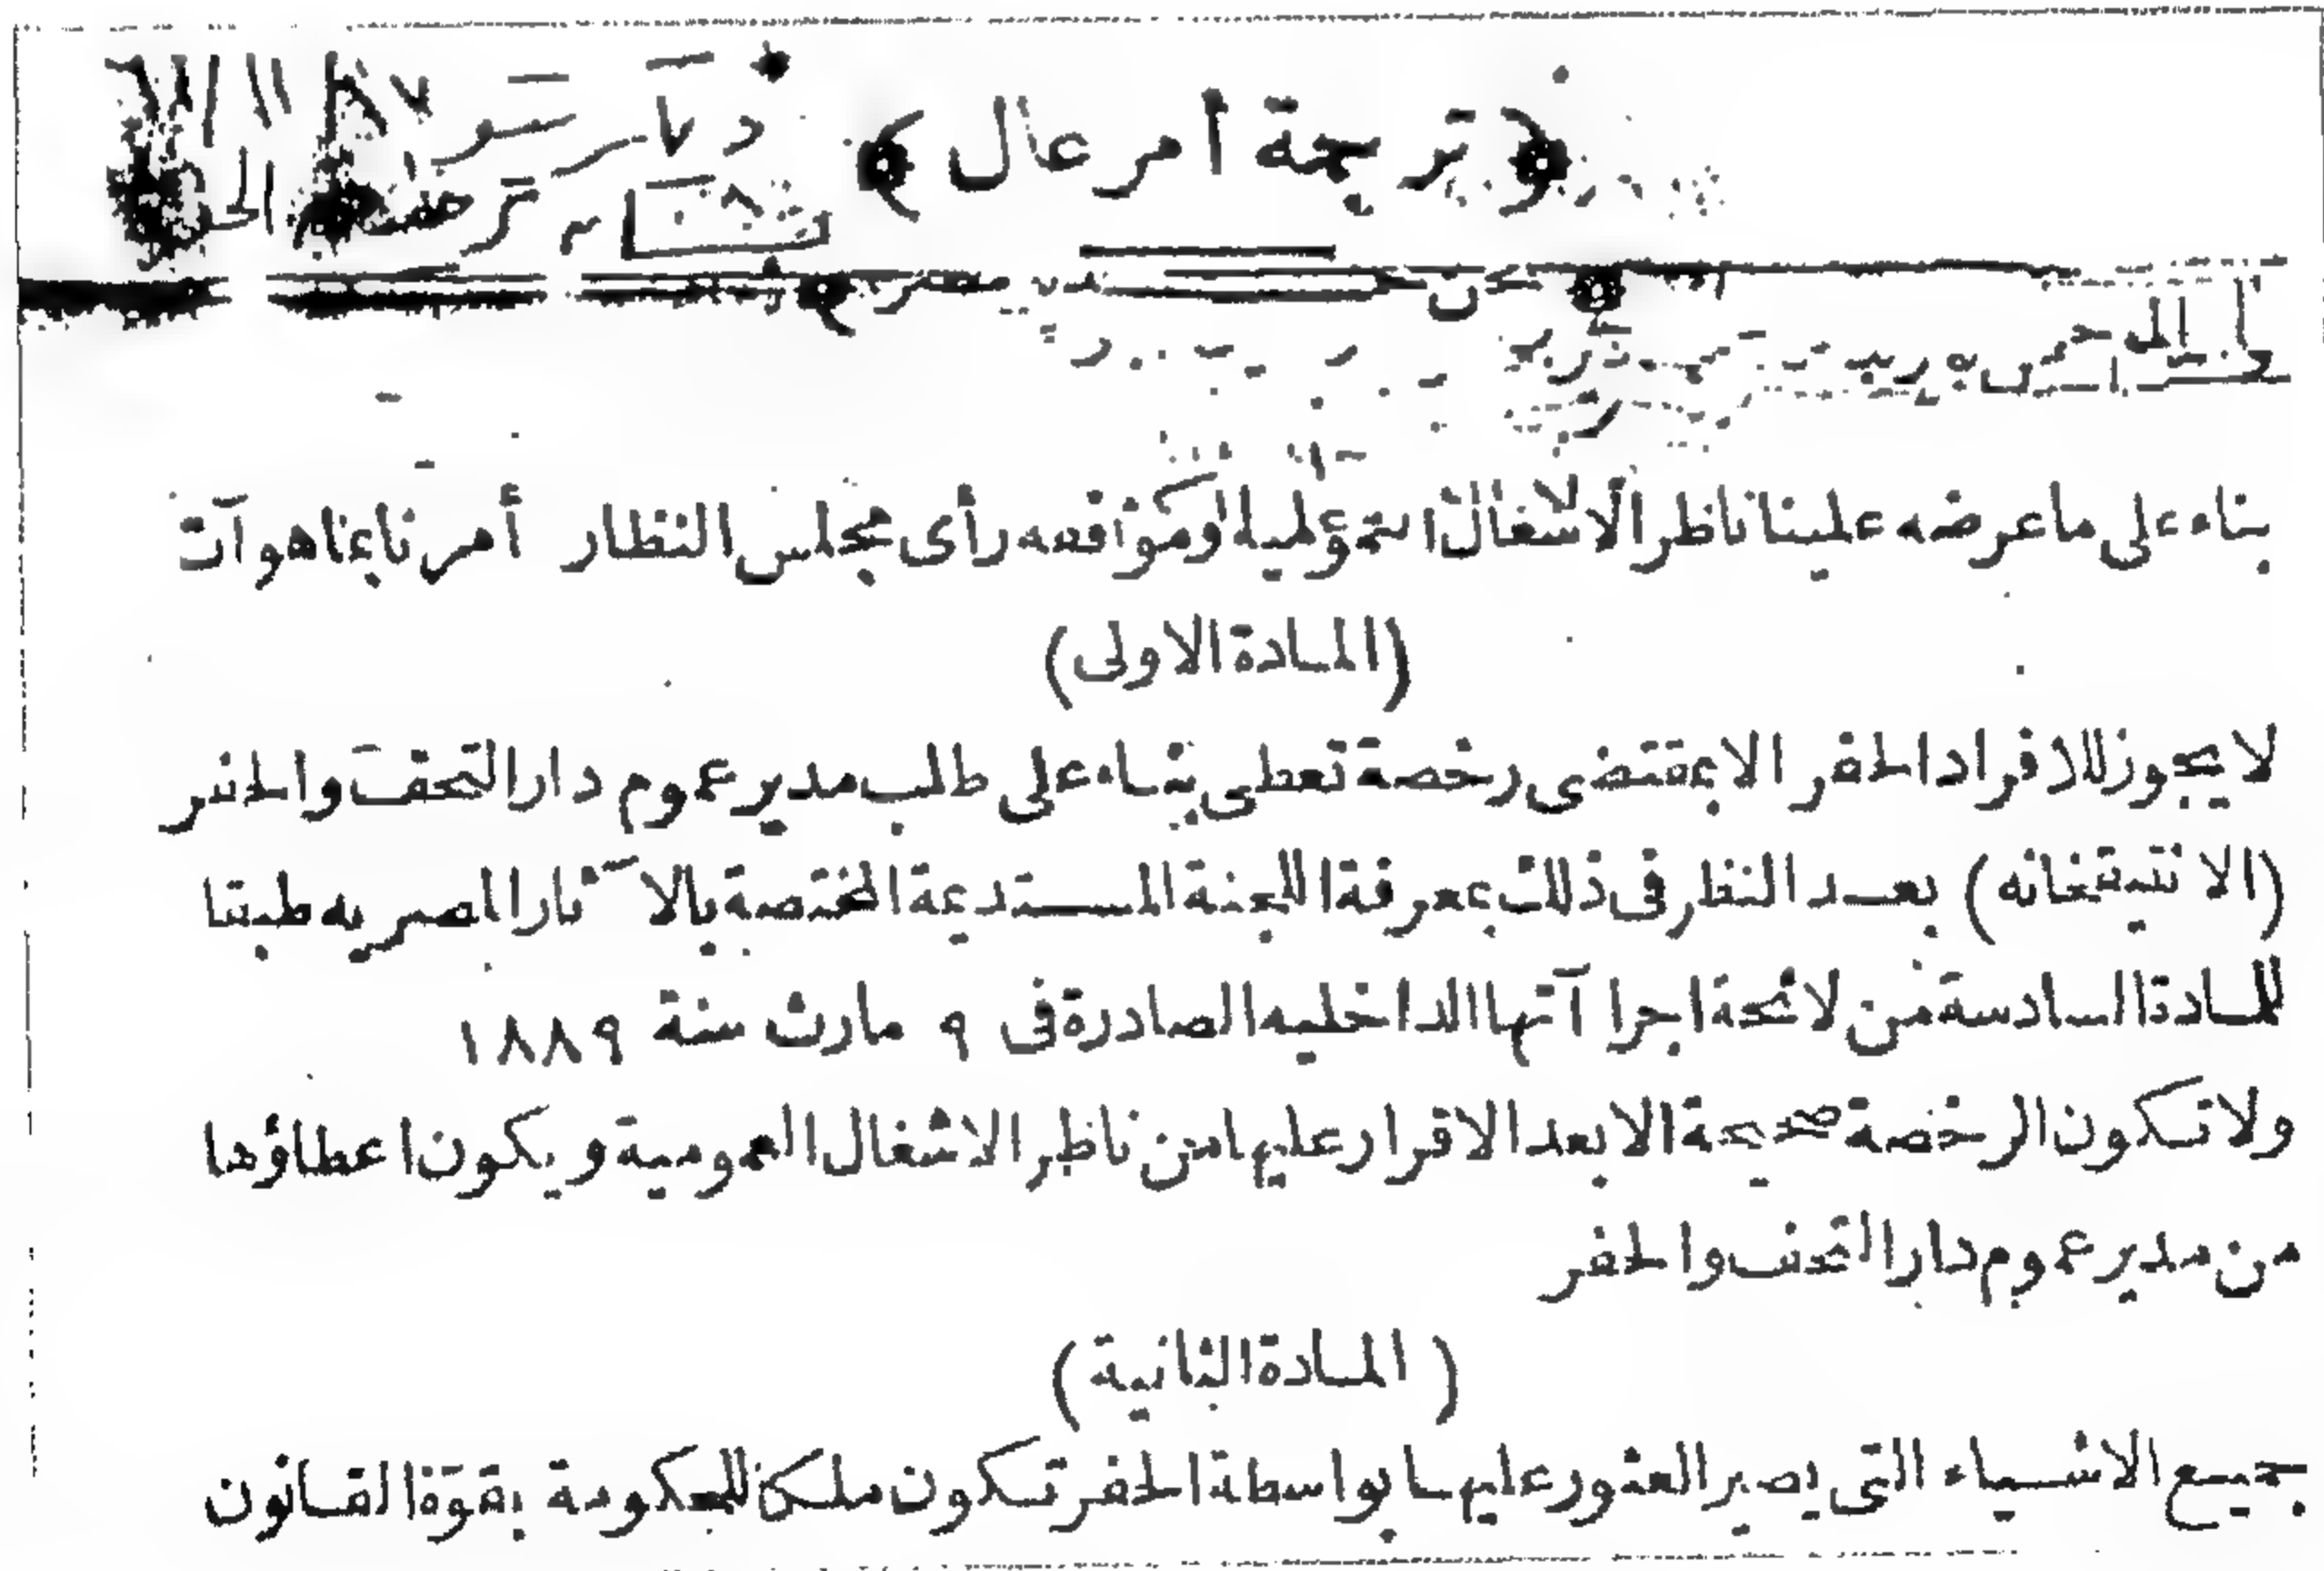 ﴿ ترجمة أمر عال ﴾
نحن خديو مصر
بناء على ما عرضه علينا ناظر الاشغال العمومية وموافقه رأى مجلس النظار أمرنا بما هو آت
(المادة الاولى)
لا يجوز للافراد الحفر الا بمقتضى رخصة تعطى بناء على طلب مدير عموم دار التحف والحفر
(الانتيقخانه) بعد النظر فى ذلك بمعرفة اللجنة المستديمة المختصة بالآثار المصريه طبقا
للمادة السادسة من لائحة اجراآتها الداخليه الصادرة فى ٩ مارث سنة ١٨٨٩
ولا تكون الرخصة صحيحة الا بعد الاقرار عليها من ناظر الاشغال العمومية ويكون اعطاؤها
من مدير عموم دار التحف والحفر
(المادة الثانية)
جميع الاشياء التى يصير العثور عليها بواسطة الحفر تكون ملكا للحكومة بقوة القانون